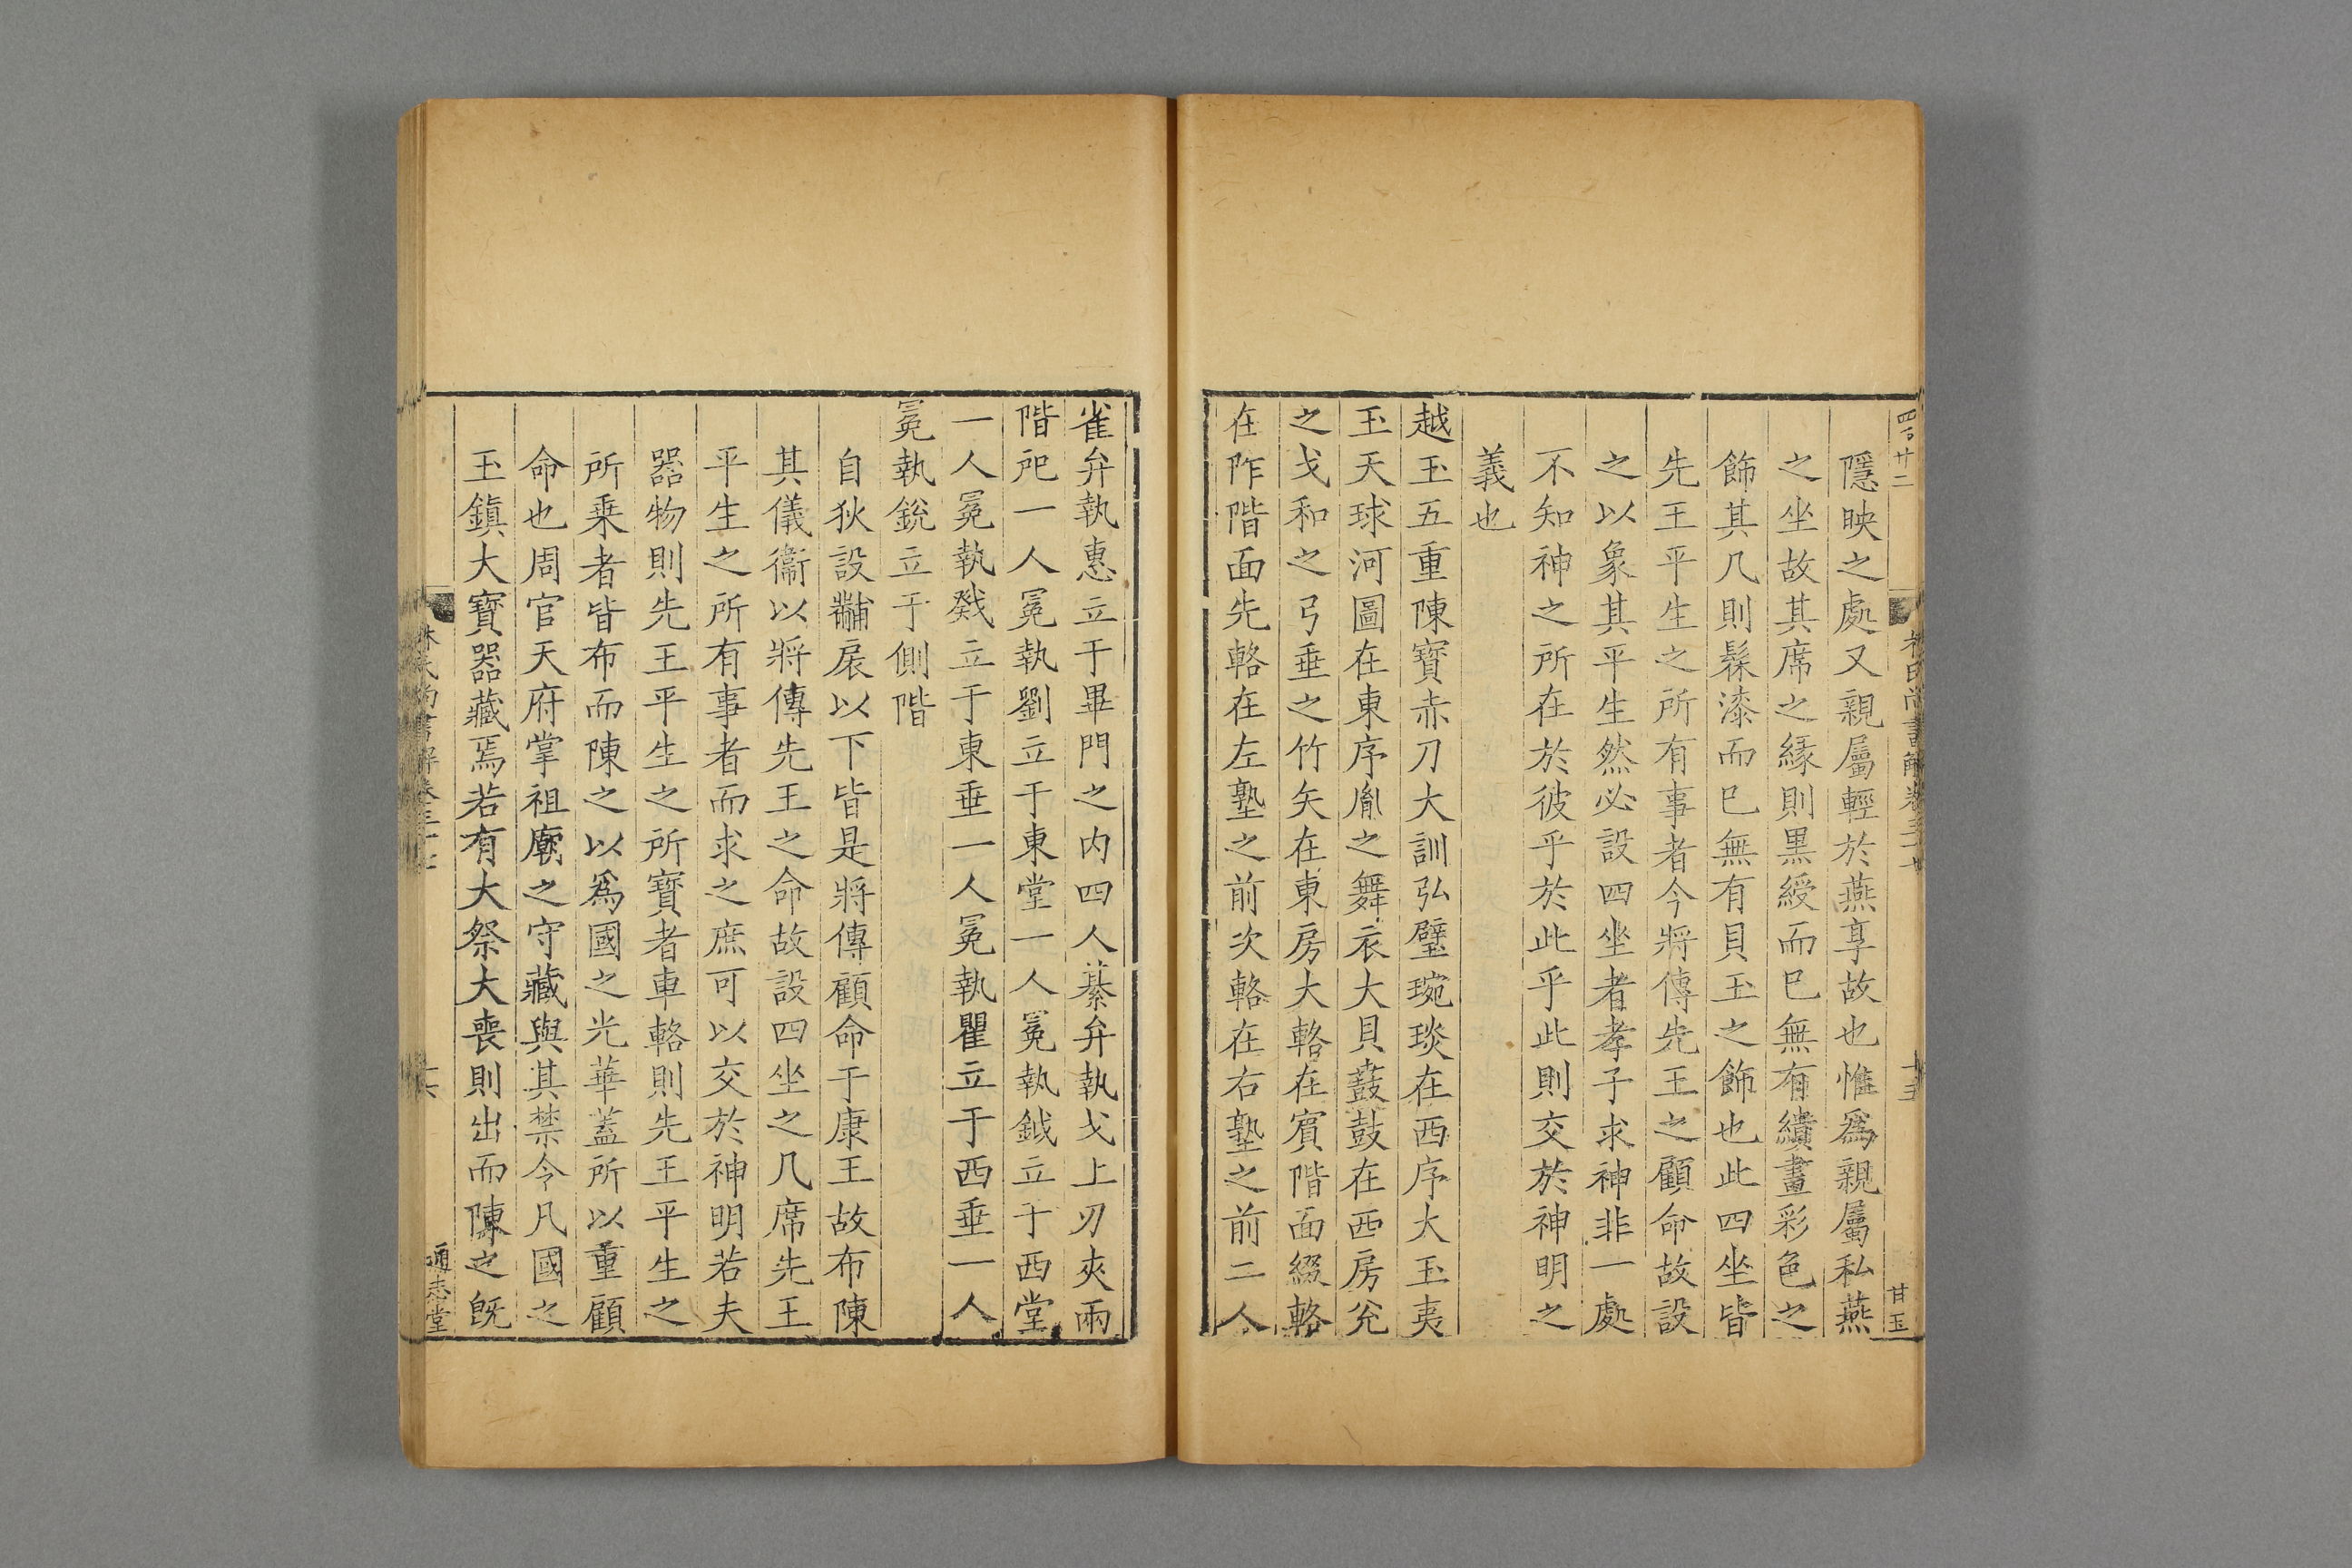 四百廿二
林氏尚書解卷三十七
十五
甘玉
隱映之處又親屬輕於燕享故也惟爲親屬私燕
之坐故其席之緣則黑綬而巳無有繢畫彩色之
飾其几則髹漆而巳無有貝玉之飾也此四坐皆
先王平生之所有事者今將傳先王之顧命故設
之以象其平生然必設四坐者孝子求神非一處
不知神之所在於彼乎於此乎此則交於神明之
義也
越玉五重陳寶赤刀大訓弘璧琬琰在西序大玉夷
玉天球河圖在東序胤之舞衣大貝鼖鼓在西房兊
之戈和之弓垂之竹矢在東房大輅在賓階面綴輅
在阼階面先輅在左塾之前次輅在右塾之前二人
雀弁執惠立于畢門之内四人綦弁執戈上刃夾兩
階戺一人冕執劉立于東堂一人冕執鉞立于西堂
一人冕執戣立于東垂一人冕執瞿立于西垂一人
冕執銳立于側階
自狄設黼扆以下皆是將傳顧命于康王故布陳
其儀衞以將傳先王之命故設四坐之几席先王
平生之所有事者而求之庶可以交於神明若夫
器物則先王平生之所寶者車輅則先王平生之
所乗者皆布而陳之以爲國之光華蓋所以重顧
命也周官天府掌祖廟之守藏與其禁令凡國之
玉鎮大寶器藏焉若有大祭大喪則出而陳之旣
林氏尚書解卷三十七
十六
通志堂